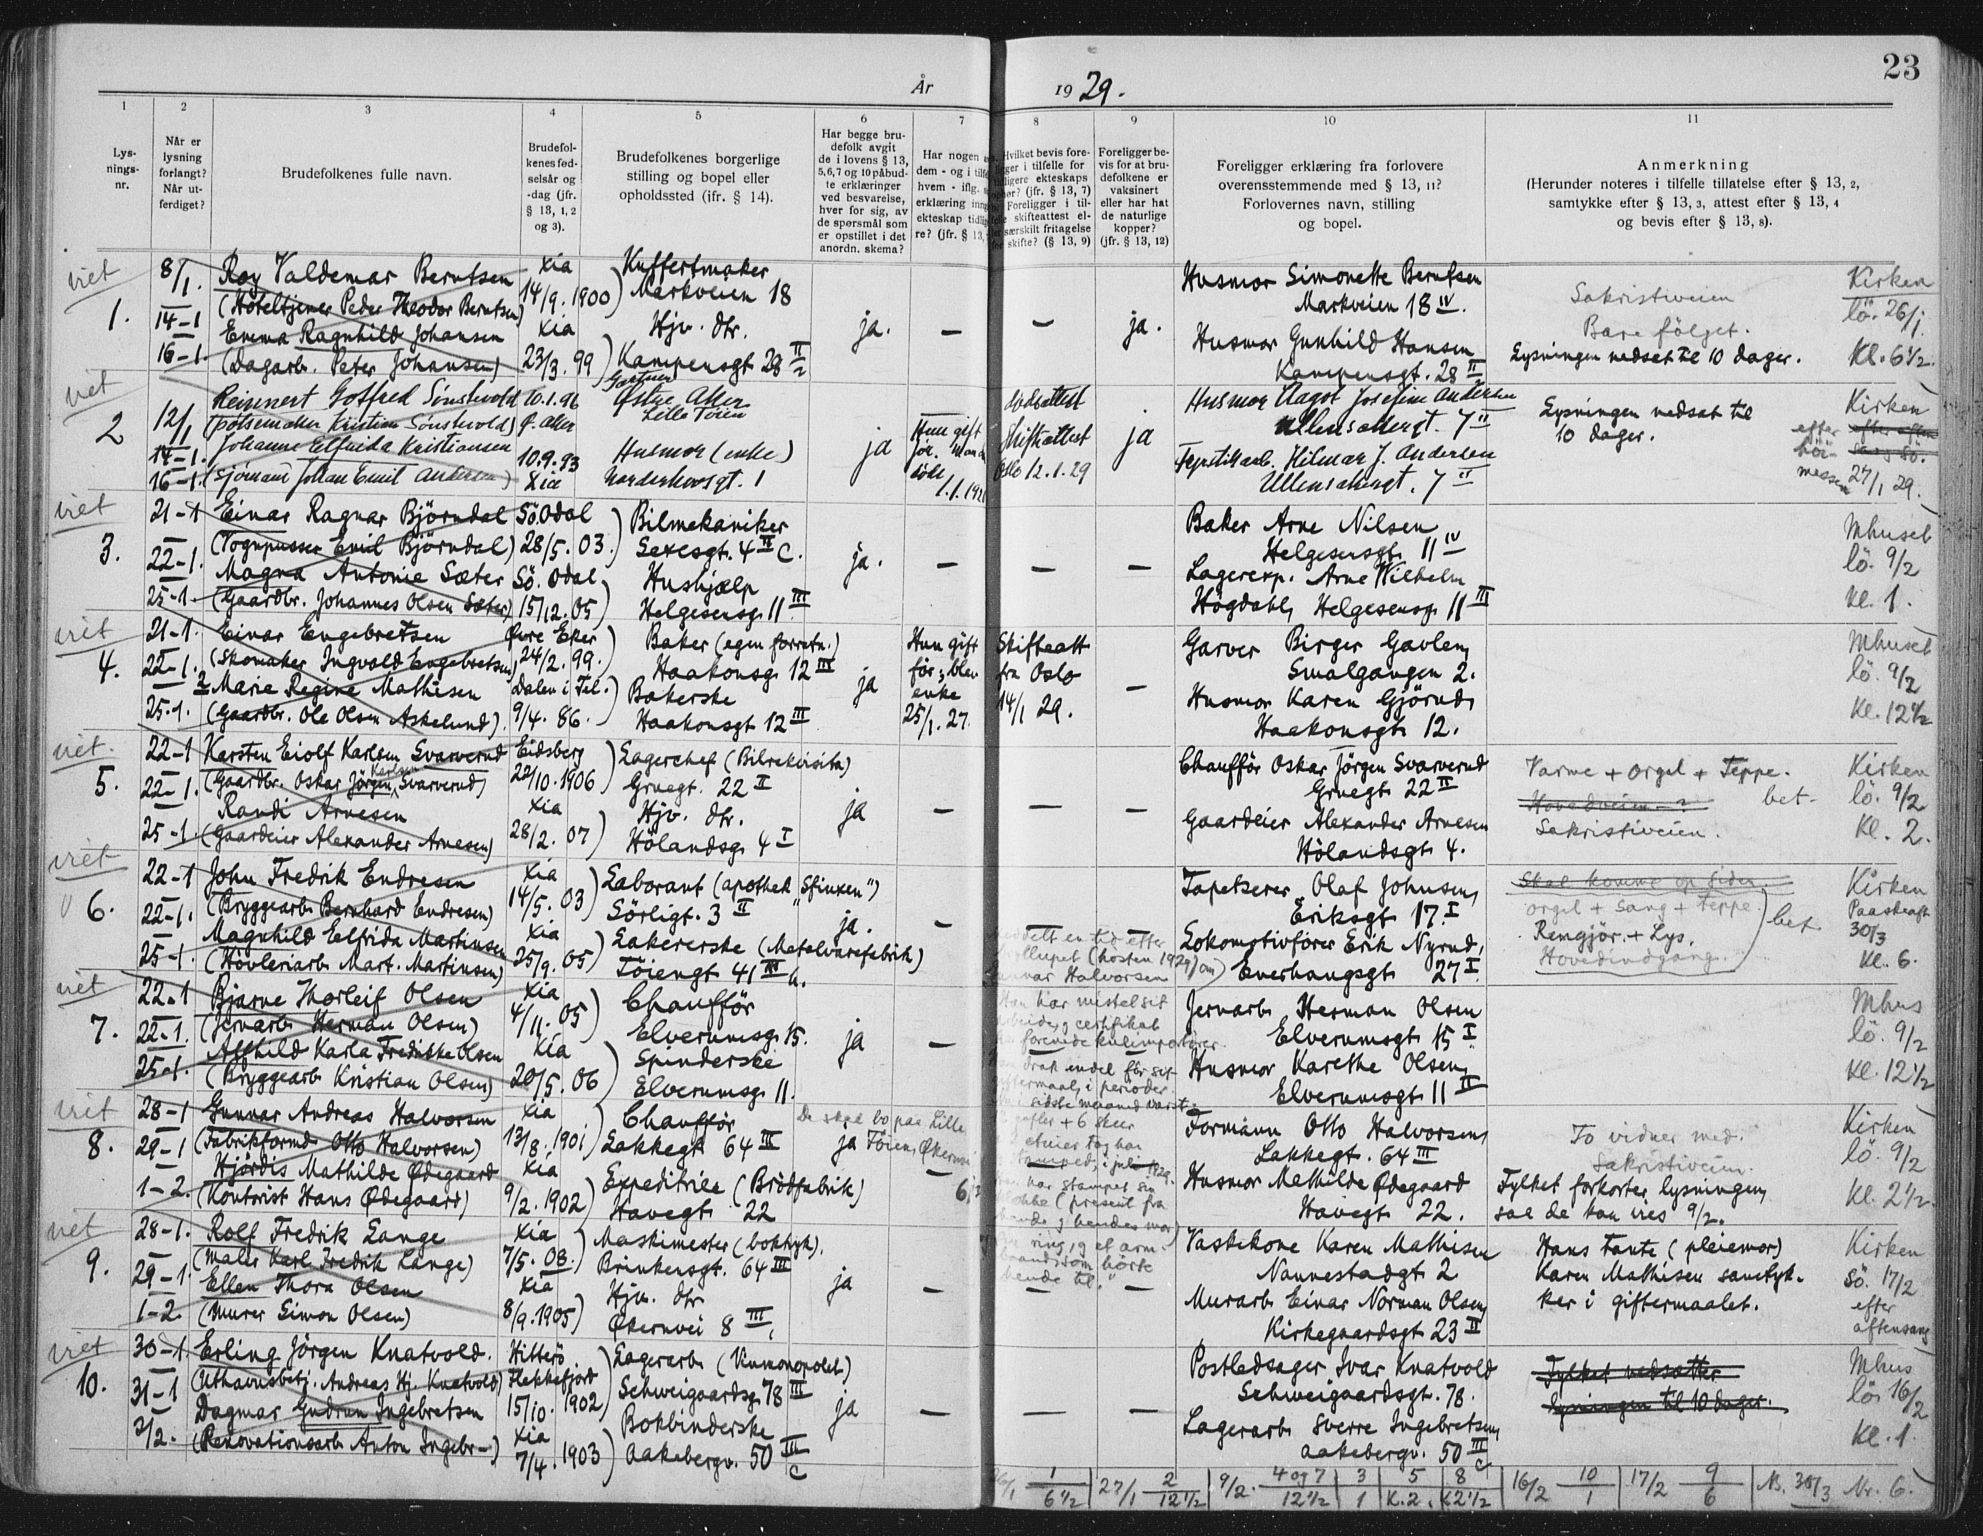 23
År 19 29.
1 2 3 4 5 6 7 8 9 10 11
Lys-
nings-
nr.
Når er
lysning
forlangt?
Når ut-
ferdiget?
Brudefolkenes fulle navn.
Brudefol-
kenes fød-
selsår og
-dag (jfr.
§ 13, 1, 2
og 3).
Brudefolkenes borgerlige
stilling og bopel eller
opholdssted (jfr. § 14).
Har begge bru-
defolk avgit
de i lovens § 13,
5,6,7 og 10 påbud-
te erklæringer
ved besvarelse,
hver for sig, av
de spørsmål som
er opstillet i det
anordn. skema?
Har nogen
dem - og i
hvem - iflg.
erklæring
ekteskap
re? (jfr. § 13,
Hvilket bevis fore-
ligger i tilfelle for
ekteskaps
(jfr. § 13, 7)
Foreligger i til-
felle skifteattest el-
særskilt fritagelse
for skifte? (§ 13, 9)
Foreligger be-
vis for at bru-
defolkene er
vaksinert
eller har hat
de naturlige
kopper?
(jfr. § 13, 12)
Foreligger erklæring fra forlovere
overensstemmende med § 13, 11?
Forlovernes navn, stilling
og bopel.
Anmerkning
(Herunder noteres i tilfelle tillatelse efter § 13, 2,
samtykke efter § 13, 3, attest efter § 13, 4
og bevis efter § 13, 8).
viet
1.
8/1.
14-1
16-1.
Roy Valdemar Berntsen
(Hoteltjener Peder Theodor Berntsen)
Emma Ragnhild Johansen
(Dagarb. Peter Johansen)
Xia
14/9. 1900
Xia
23/3. 99
Kuffertmaker
Markveien 18
Hjv. dtr.
Kampensgt. 28 II
ja. — — ja.
Husmor Simonette Berntsen
Markveien 18 IV.
Husmor Gunhild Hansen
Kampensgt. 28 II
Sakristiveien
Bare følget.
Lysningen nedsat til 10 dager.
Kirken
lö. 26/1.
Kl. 6 1/2.
viet
2
12/1
14-1.
16-1.
Reinnert Gotfred Sönstevold
(pölsemaker Kristian Sönstevold)
Johanne Elfrida Kristiansen
(Sjömand Johan Emil Andersen)
10.1.96
Ø. Aker
10.9.93
Xia
Gartner
Østre Aker
Lille Töien
Husmor (enke)
Norderhovsgt. 1
ja
Hun gift
før. Mand
död
1.1.192
Dödsattest
Skifteattest
Oslo 12.1.29
ja
Husmor Aagot Josefine Andersen
Ullensakergt. 7 II
Fyrstikarb. Hilmar J. Andersen
Ullensakergt. 7 II
Lysningen nedsat til
10 dager.
Kirken
efter
höi-
messen
27/1 29.
viet
3.
21-1
22-1.
25-1.
Einar Ragnar Björndal
(Vognpusser Emil Björndal)
Magna Antonie Sæter
(Gaardbr. Johannes Olsen Sæter)
Sö. Odal
28/5. 03.
Sö. Odal
15/12. 05
Bilmekaniker
Sexesgt. 4 II c.
Hushjælp
Helgesensg. 11 III
ja. — — —
Baker Arne Nilsen
Helgesensgt. 11 IV
Lagerexp. Arne Wilhelm
Högdahl, Helgesensg. 11 III
Mhuset
lö. 9/2
kl. 1.
viet
4.
21-1.
22-1.
25-1.
Einar Engebretsen
(Skomaker Ingvald Engebretsen)
Marie Regine Mathisen
(Gaardbr. Ole Olsen Askelund)
Øvre Eker
24/2. 99.
Dalen i Tel.
9/4. 86.
Baker (egen forretn.)
Haakonsg. 12 III
Bakerske
Haakonsgt 12 III
ja
Hun gift
før; blev
enke
25/1. 27.
Skifteatt
fra Oslo
14/1 29.
—
Garver Birger Gavlem
Smalgangen 2.
Husmor Karen Gjörud,
Haakonsgt. 12.
Mhuset
lö. 9/2
Kl. 12 1/2
viet.
5.
22-1
22-1.
25-1
Karsten Eiolf Karlsen Svarverud
(Gaardbr. Oskar Jörgen Karlsen Svarverud)
Randi Arnesen
(Gaardeier Alexander Arnesen)
Eidsberg
22/10. 1906
Xia
28/2. 07
Lagerchef (Bilrekvisita)
Gruegt. 22 I
Hjv. dtr.
Hölandsg. 4 I
ja — — —
Chaufför Oskar Jörgen Svarverud
Gruegt. 22 II
Gaardeier Alexander Arnesen
Hölandsgt. 4.
Varme + orgel + Teppe.
Hovedveien -? bet.
Sakristiveien.
Kirken
lö. 9/2
Kl. 2.
viet
6.
22-1
22-1.
25-1.
John Fredrik Endresen
(Bryggearb. Bernhard Endresen)
Magnhild Elfrida Martinsen
(Hövleriarb. Mart. Martinsen)
Xia
14/5. 03
Xia
25/9. 05
Laborant (apothek „Sfinxen")
Sörligt. 3 II
Lakererske (Metalvarefabrik)
Töiengt. 41 III h.
ja. — — —
Tapetserer Olaf Johnsen,
Eriksgt. 17 I
Lokomotivfører Erik Nyrud,
Enerhaugsgt. 27 I
Skal komme op siden
orgel + Sang + Teppe.
Rengjör. + Lys, bet.
Hovedindgang.
Kirken
Paaskeaft
30/3
kl. 6.
viet
7.
22-1
22-1.
25-1.
Bjarne Thorleif Olsen
(Jernarb. Herman Olsen)
Alfhild Karla Fredrikke Olsen
(Bryggearb. Kristian Olsen)
Xia
4/11. 05
Xia
20/5. 06
Chaufför
Elverumsg. 15.
Spinderske
Elverumsg. 11.
ja — — —
Jernarb. Herman Olsen
Elverumsgt. 15 I
Husmor Karethe Olsen,
Elverumsgt. 11 II
Mhus
lö. 9/2
Kl. 12 1/2
viet
8.
28-1
29-1
1-2.
Gunnar Andreas Halvorsen
(Fabrikformd. Otto Halvorsen)
Hjördis Mathilde Ødegaard
(Kontorist Hans Ødegaard)
Xia
13/8. 1901
Xia
9/2. 1902
Chaufför
Lakkegt. 64 III
Expeditrice (Brödfabrik)
Havegt. 22
De skal bo paa Lille
ja Töien, Økernvei
— —
Formann Otto Halvorsen,
Lakkegt. 64 III
Husmor Mathilde Ødegaard
Havegt. 22.
To vidner med.
Sakristiveien.
Fylket forkorter lysningen,
saa de kan vies 9/2.
Kirken
lö. 9/2
Kl. 2 1/2
en tid efter
bryllupet (hösten 1929) om
Gunnar Halvorsen
Han har mistet sit
certifikat
forenede kulimportører.
drak endel för sit
giftermaal, i perioder.
sidste maaned værst.
gafler + 6 skeer
etuier tog han
stampet, i juli 1929.
har stampet sin
(present fra
hendes mor)
ring og et arm-
baand, som hörte
hende til."
viet
9.
28-1.
29-1.
1-2.
Rolf Fredrik Lange
(Maler Karl Fredrik Lange)
Ellen Thora Olsen
(Murer Simon Olsen)
Xia
7/5. 08.
Xia
8/9. 1905
Maskimester (boktryk).
Brinkensgt. 64 III
Hjv. dtr
Økernvei 8 III,
ja — — —
Vaskekone Karen Mathisen
Nannestadgt. 2
Murarb. Einar Norman Olsen,
Kirkegaardsgt. 23 II
Hans tante (pleiemor)
Karen Mathisen samtyk-
ker i giftermaalet.
Kirken
Sö. 17/2
efter
aftensang
viet
10.
30-1.
31-1
3/2.
Erling Jörgen Knatvold.
(Uthavnsbetj. Andreas Hj. Knatvold)
Dagmar Gudrun Ingebretsen
(Renovationsarb. Anton Ingebr-)
Hitterö
Flekkefjord
15/10. 1902
Xia
7/4. 1903
Lagerarb. (Vinmonopolet)
Schweigaardsg. 78 III
Bokbinderske
Aakebergv. 50 III c
ja — — —
Postledsager Ivar Knatvold
Schweigaardsgt. 78.
Lagerarb. Sverre Ingebretsen,
Aakebergv. 50 III c
Fylket nedsatte
lysningen til 10 dager.
Mhus
lö. 16/2
Kl. 1
26/1 1 / 6 1/2 27/1 2 / 12 1/2 9/2. 4 og 7 / 12 1/2 3 / 1 5 / K. 2. 8 / K2 1/2 16/2 10 / 1 17/2 9 / 6 N. 30/3 Nr. 6.